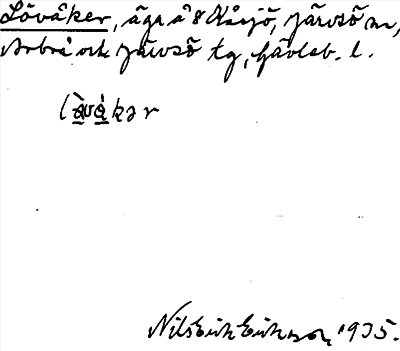 Lövåker, äga å 8 Kåsjö, Järvsö sn,
Arbrå och Järvsö tg, Gävleb. l.
lä̀vákər
Nils Erik Eriksson, 1935.